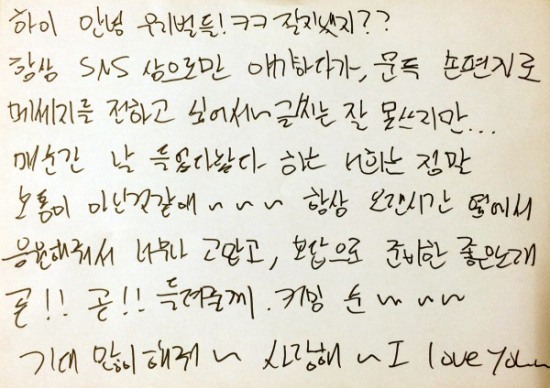 하이 안녕 우리벗들! ㅋㅋ 잘지냈지??
항상 SNS 상으로만 얘기하다가, 문득 손편지로
메세지를 전하고 싶어서~ 글씨는 잘 못쓰지만...
매순간 날 들었다놨다 하는 너희는 정말
보통이 아닌것같애 ~ ~ ~ 항상 오랜시간 옆에서
응원해줘서 너무나 고맙고, 보답으로 준비한 좋은노래
곧!! 곧!! 들려줄께. 커밍 순 ~ ~ ~
기대 많이해줘 ~ 사랑해 ~ I love you~